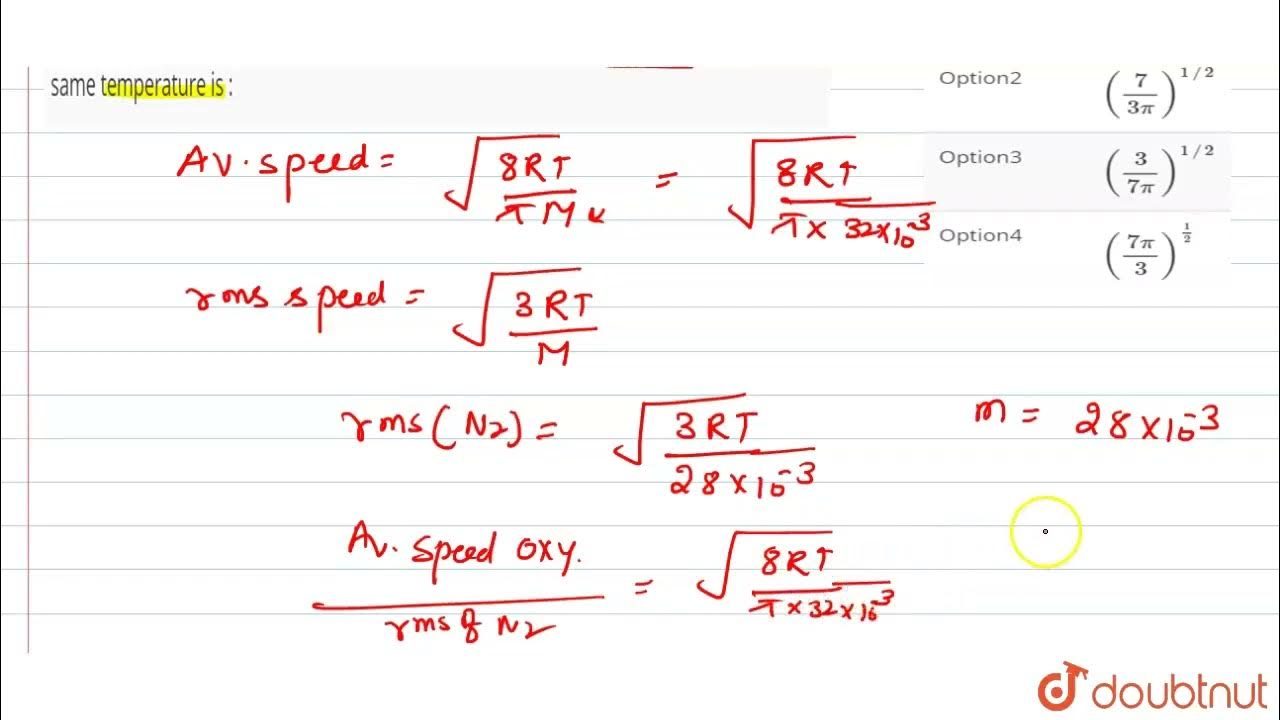 same temperature is :
Option2 (7/3π)^1/2
Option3 (3/7π)^1/2
Option4 (7π/3)^1/2
Av. speed = √(8RT/πM) = √(8RT/π× 32×10^-3)
rms speed = √(3RT/M)
rms (N2) = √(3RT/28×10^-3)
m = 28×10^-3
Av. speed oxy./rms of N2 = √(8RT/π×32×10^-3)
doubtnut